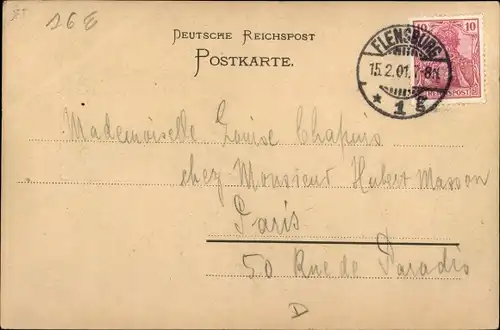 16 E
DEUTSCHE REICHSPOST
POSTKARTE.
10 10
REICHSPOST
FLENSBURG
15.2.01. 7-8N.
* 1 E
Mademoiselle Louise Chapuis
chez Monsieur Hubert Masson
Paris
50 Rue de Paradis
D